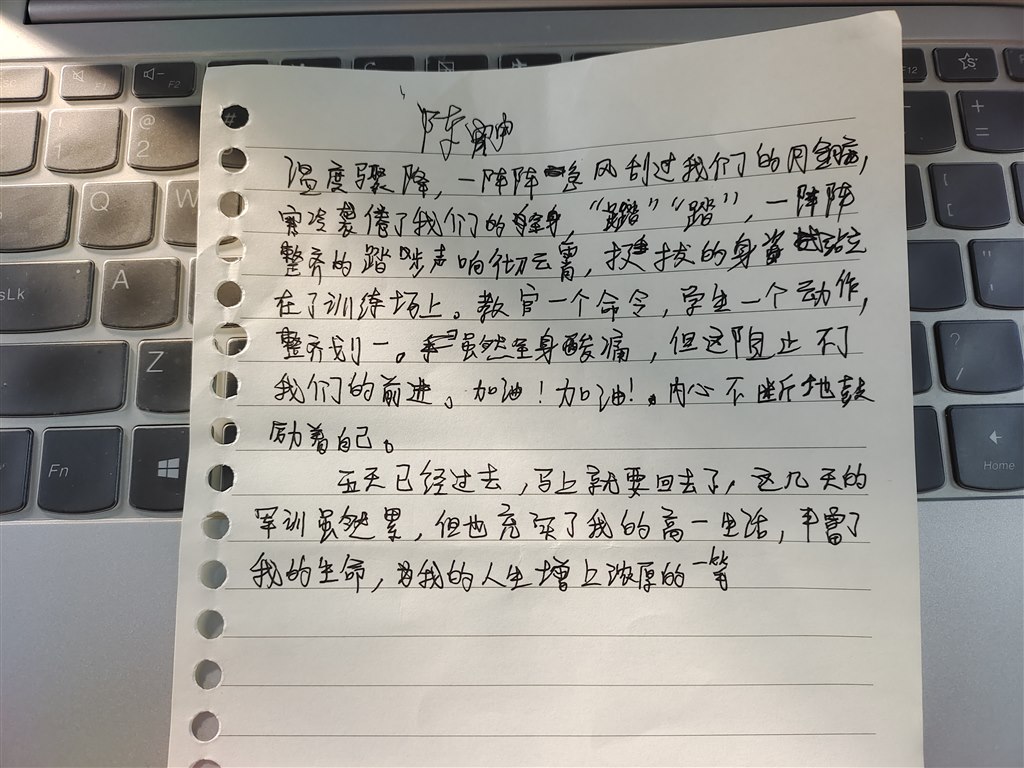 温度骤降，一阵阵急风刮过我们的周，
寒冷袭倦了我们的全身，“踏”“踏”，一阵阵
整齐的踏步声响彻云霄，挺拔的身站立
在了训练场上。教官一个命令，学生一个动作，
整齐划一。虽然全身酸痛，但这阻止不了
我们的前进。加油！加油！内心不断地鼓
励着自己。
五天已经过去，马上就要回去了，这几天的
军训虽然累，但也充实了我的高一生活，丰富了
我的生命，为我的人生增上浓厚的一笔
# 1 @ 2 Q W A Z Fn sLk F2 F12 + = ? / Home